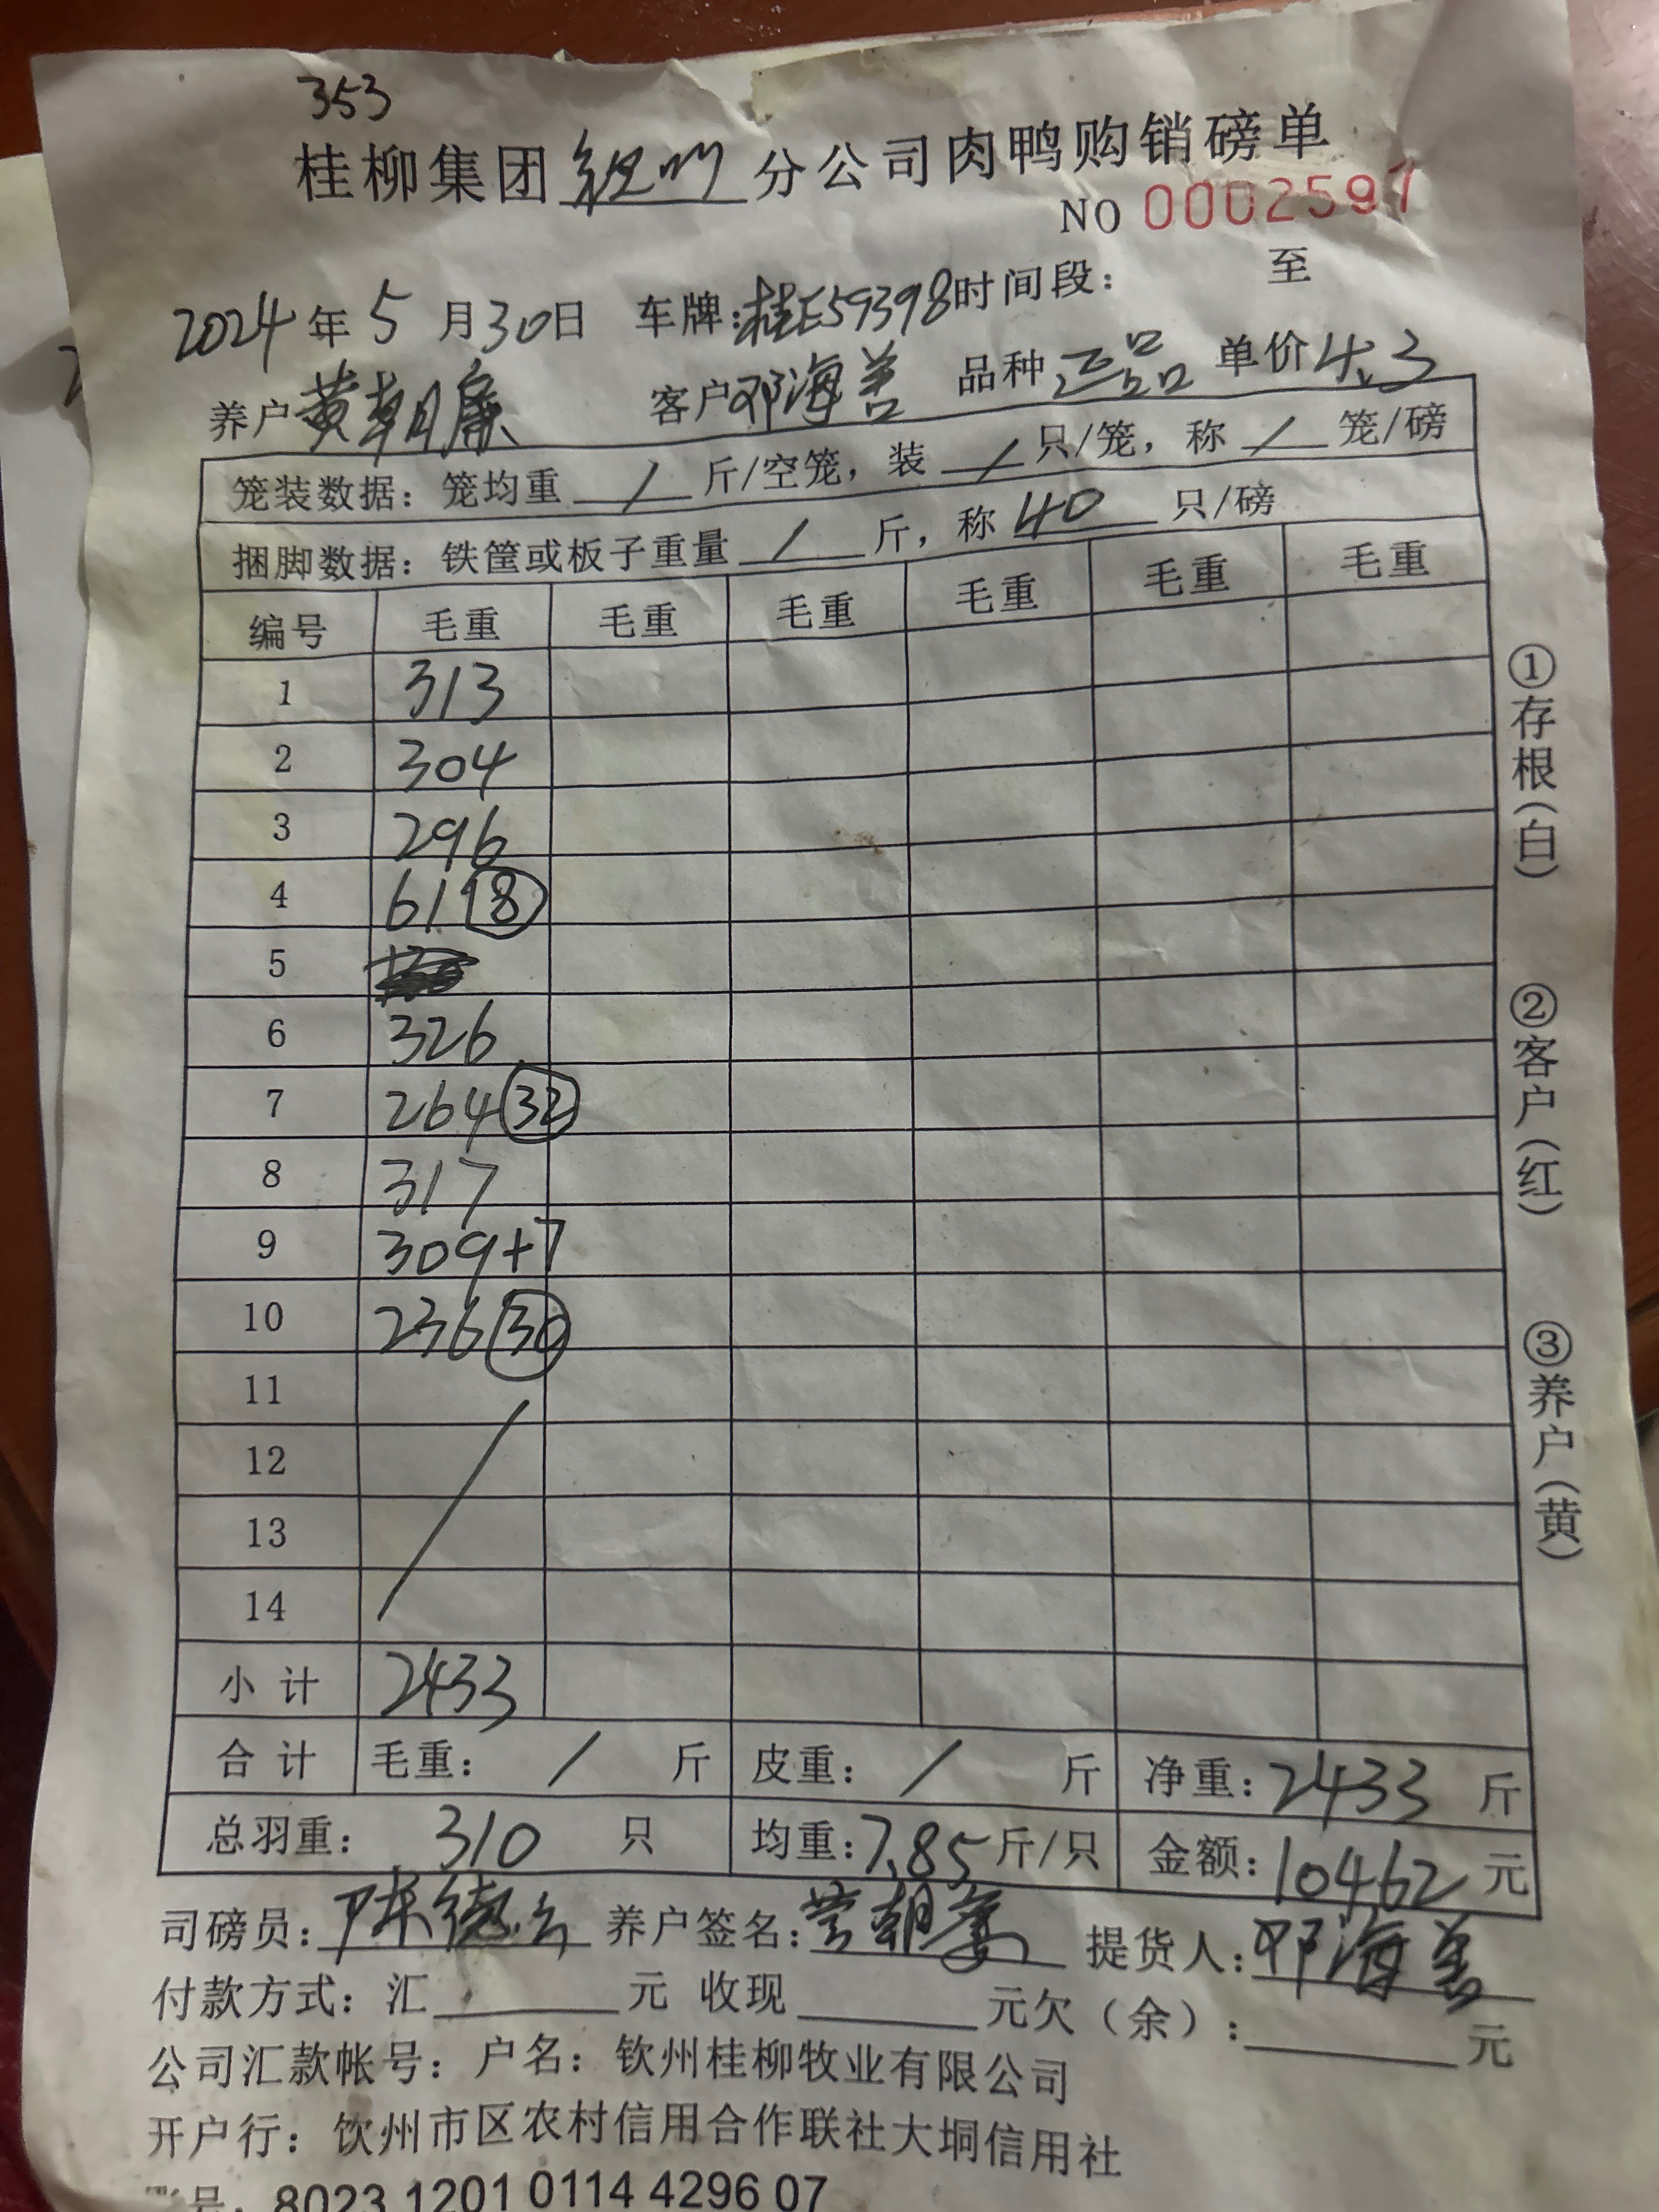 353
桂柳集团钦州分公司肉鸭购销磅单
NO 0002597
2024年5月30日 车牌:桂E59398时间段: 至
养户黄朝廉 客户邓海善 品种正品 单价4.3
笼装数据：笼均重 / 斤/空笼，装 / 只/笼，称 / 笼/磅
捆脚数据：铁筐或板子重量 / 斤，称 40 只/磅
编号 毛重 毛重 毛重 毛重 毛重 毛重
1 313
2 304
3 296
4 61 (8)
5
6 326
7 264 (32)
8 317
9 309+7
10 236 (30)
11
12
13
14
小计 2433
合计 毛重： / 斤 皮重： / 斤 净重：2433 斤
总羽重： 310 只 均重：7.85斤/只 金额：10462元
司磅员：陈德云 养户签名： 提货人：邓海善
付款方式：汇 元 收现 元欠（余）： 元
公司汇款帐号：户名：钦州桂柳牧业有限公司
开户行：钦州市区农村信用合作联社大垌信用社
账号：8023 1201 0114 4296 07
①存根（白） ②客户（红） ③养户（黄）